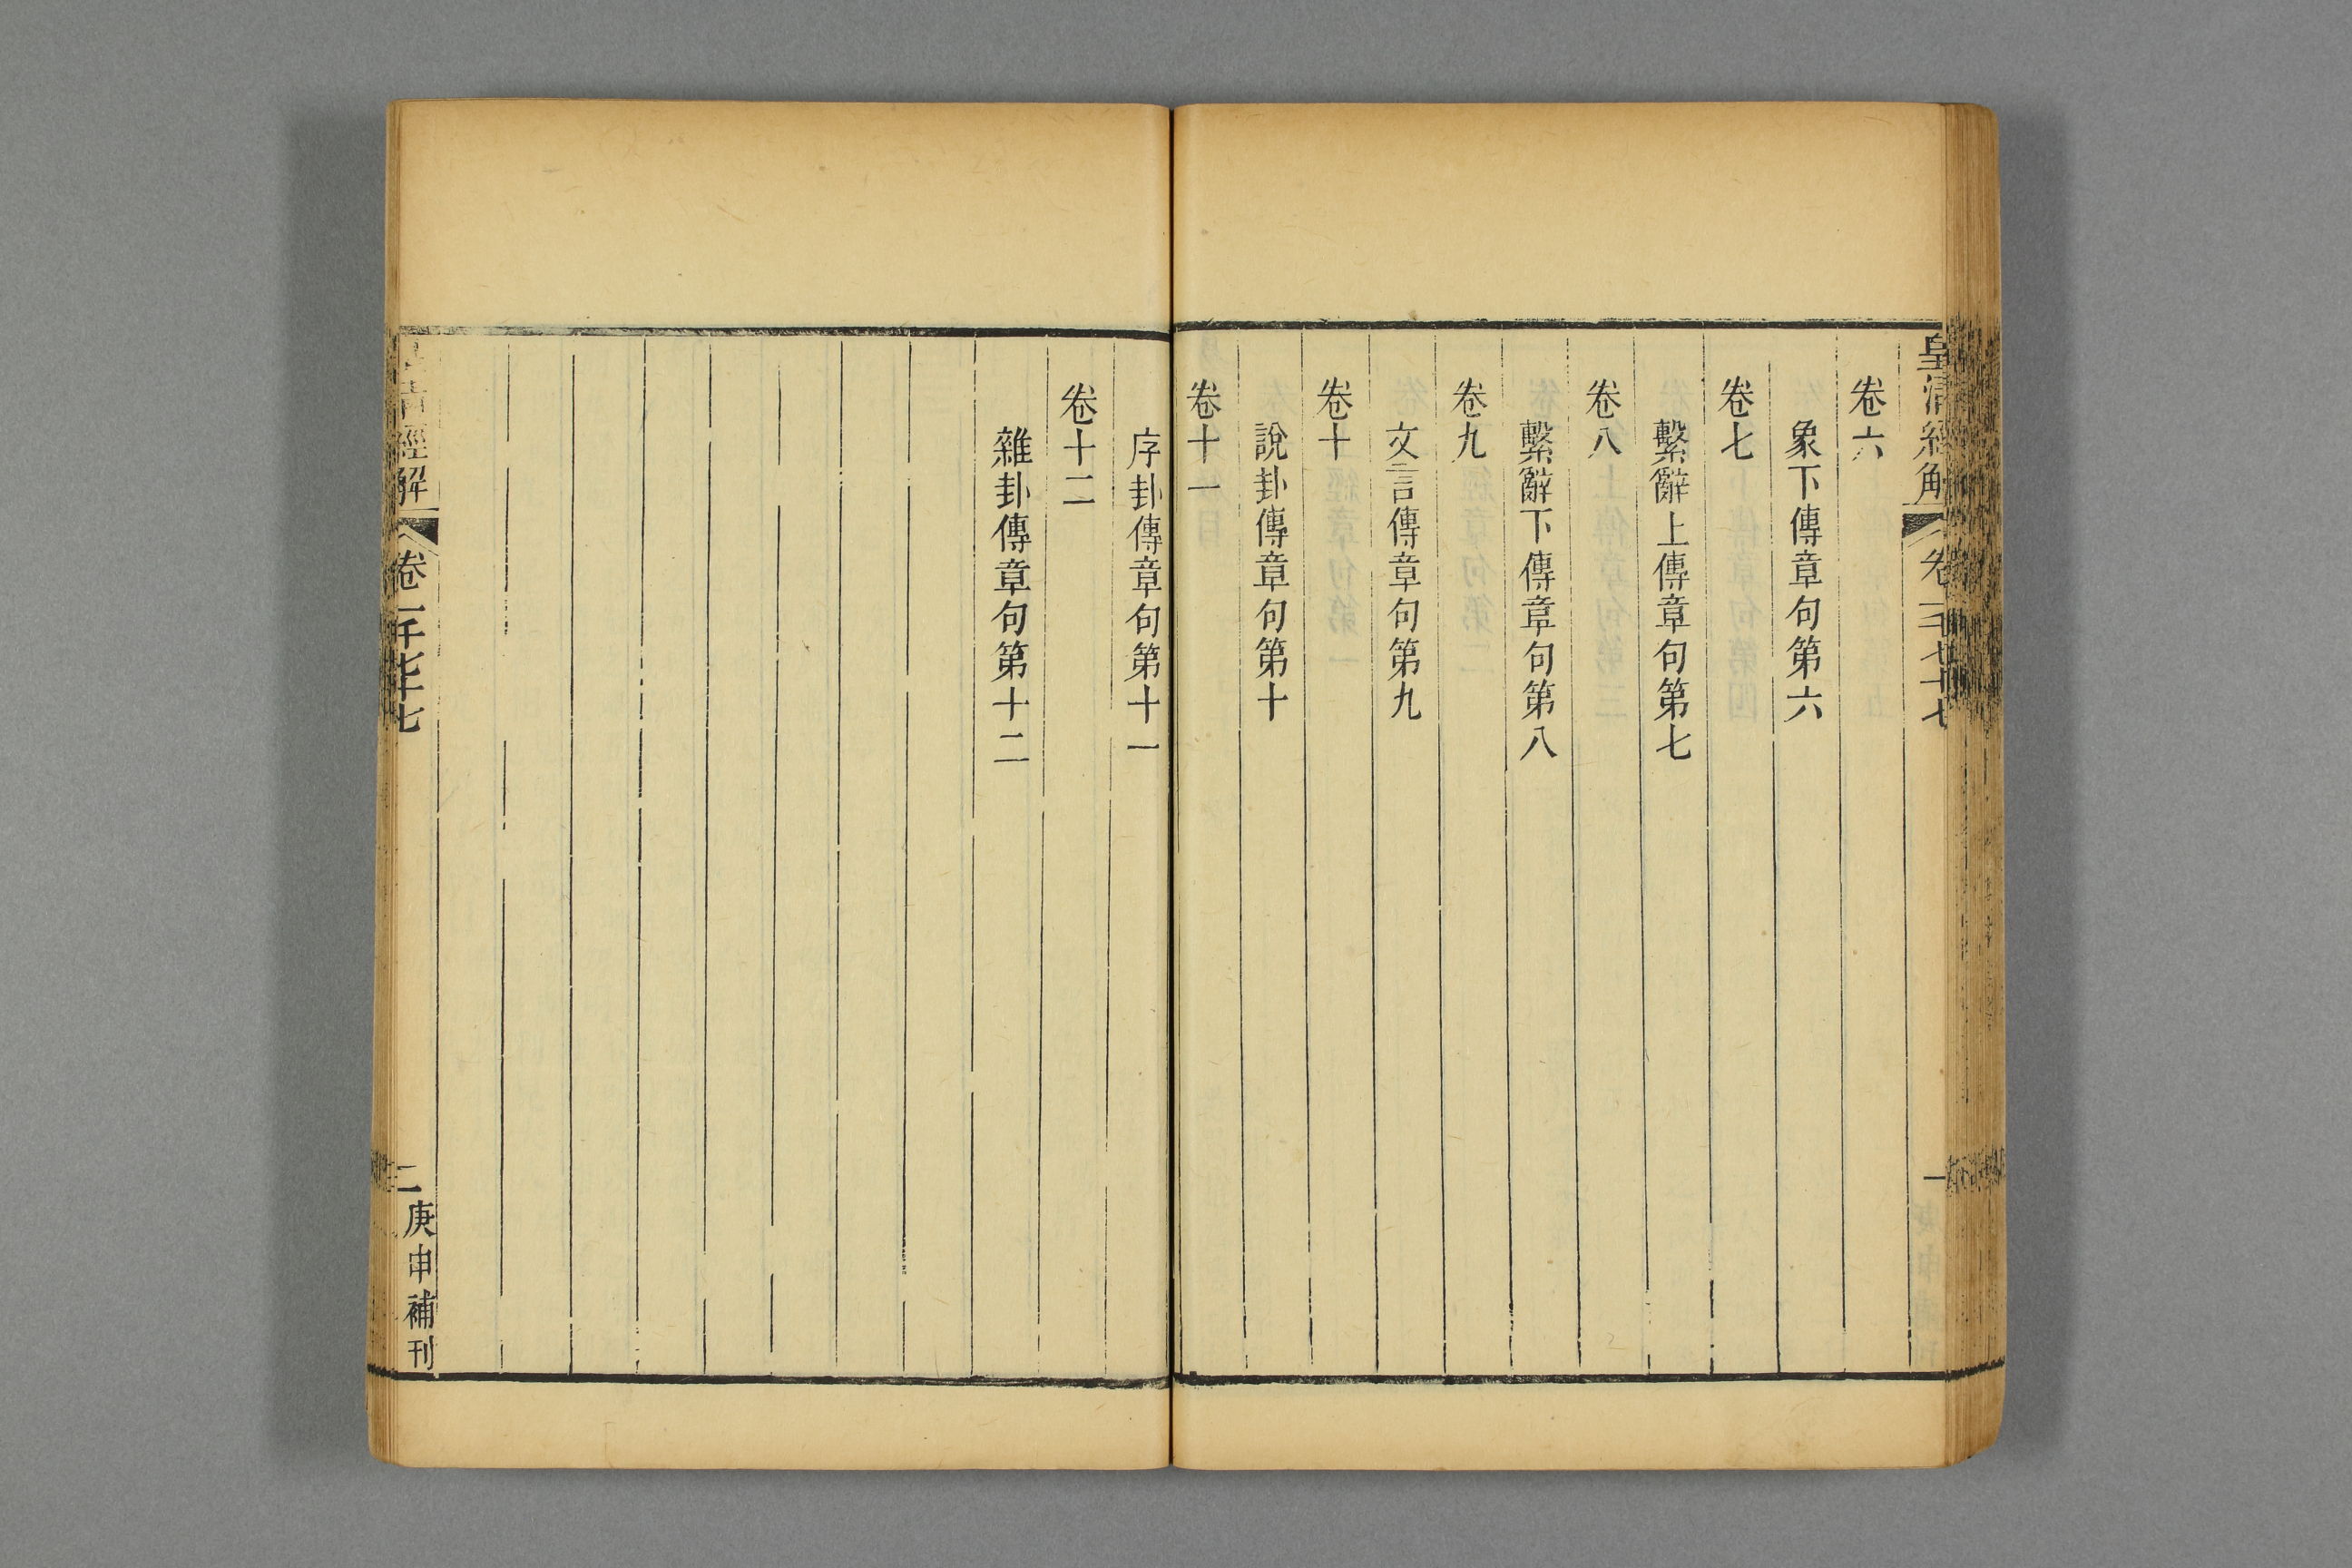 皇清經解
卷一千七十七
一
卷六
象下傳章句第六
卷七
繫辭上傳章句第七
卷八
繫辭下傳章句第八
卷九
文言傳章句第九
卷十
說卦傳章句第十
卷十一
序卦傳章句第十一
卷十二
雜卦傳章句第十二
清經解
卷一千七十七
二
庚申補刊